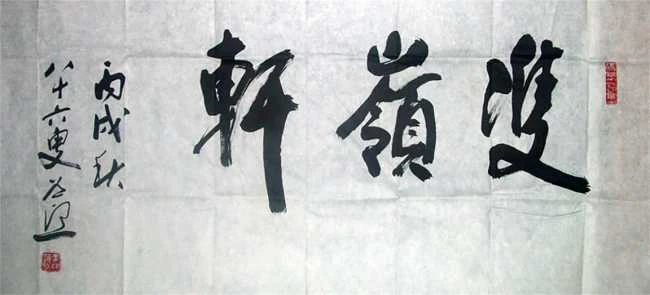 雙嶺軒
丙戌秋
八十六叟